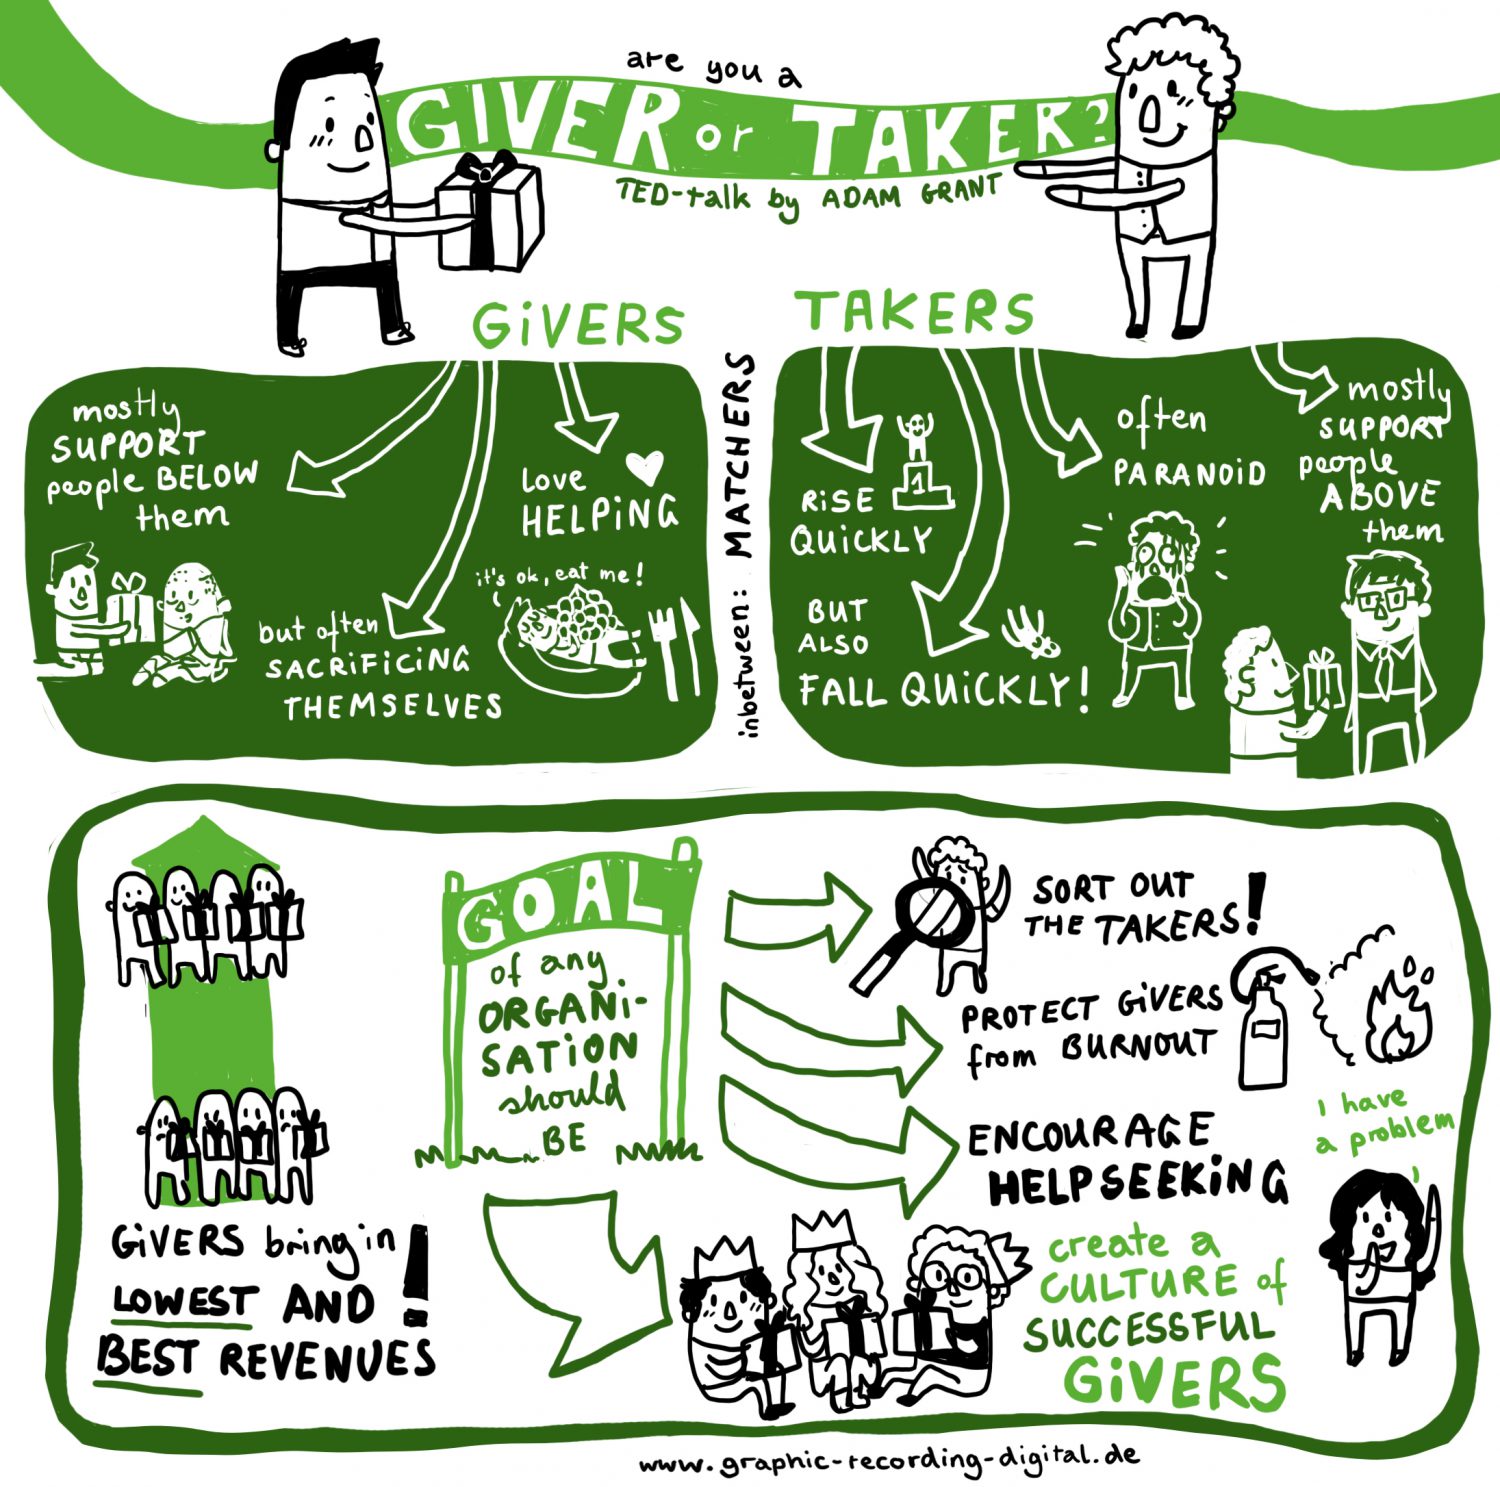 are you a
GIVER or TAKER?
TED-talk by ADAM GRANT
GiVERS
mostly
SUPPORT
people BELOW
them
but often
SACRiFiCiNG
THEMSELVES
love
HELPiNG
it's ok, eat me!
inbetween: MATCHERS
TAKERS
RiSE
QUiCKLY
1
BUT
ALSO
FALL QUiCKLY!
often
PARANOiD
mostly
SUPPORT
people
ABOVE
them
GiVERS bring in
LOWEST AND
BEST REVENUES!
GOAL
of any
ORGANi-
SATiON
should
BE
SORT OUT
THE TAKERS!
PROTECT GiVERS
from BURNOUT
ENCOURAGE
HELPSEEKiNG
I have
a problem
create a
CULTURE of
SUCCESSFUL
GiVERS
www.graphic-recording-digital.de